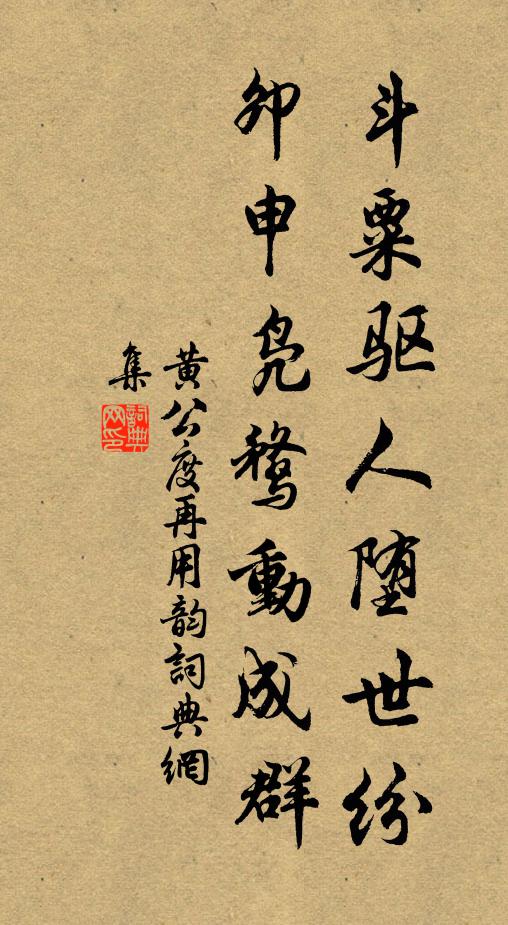 斗粟驱人堕世纷
卯申凫鹜動成群
黄公度再用韵詞典網
集
詞典網印